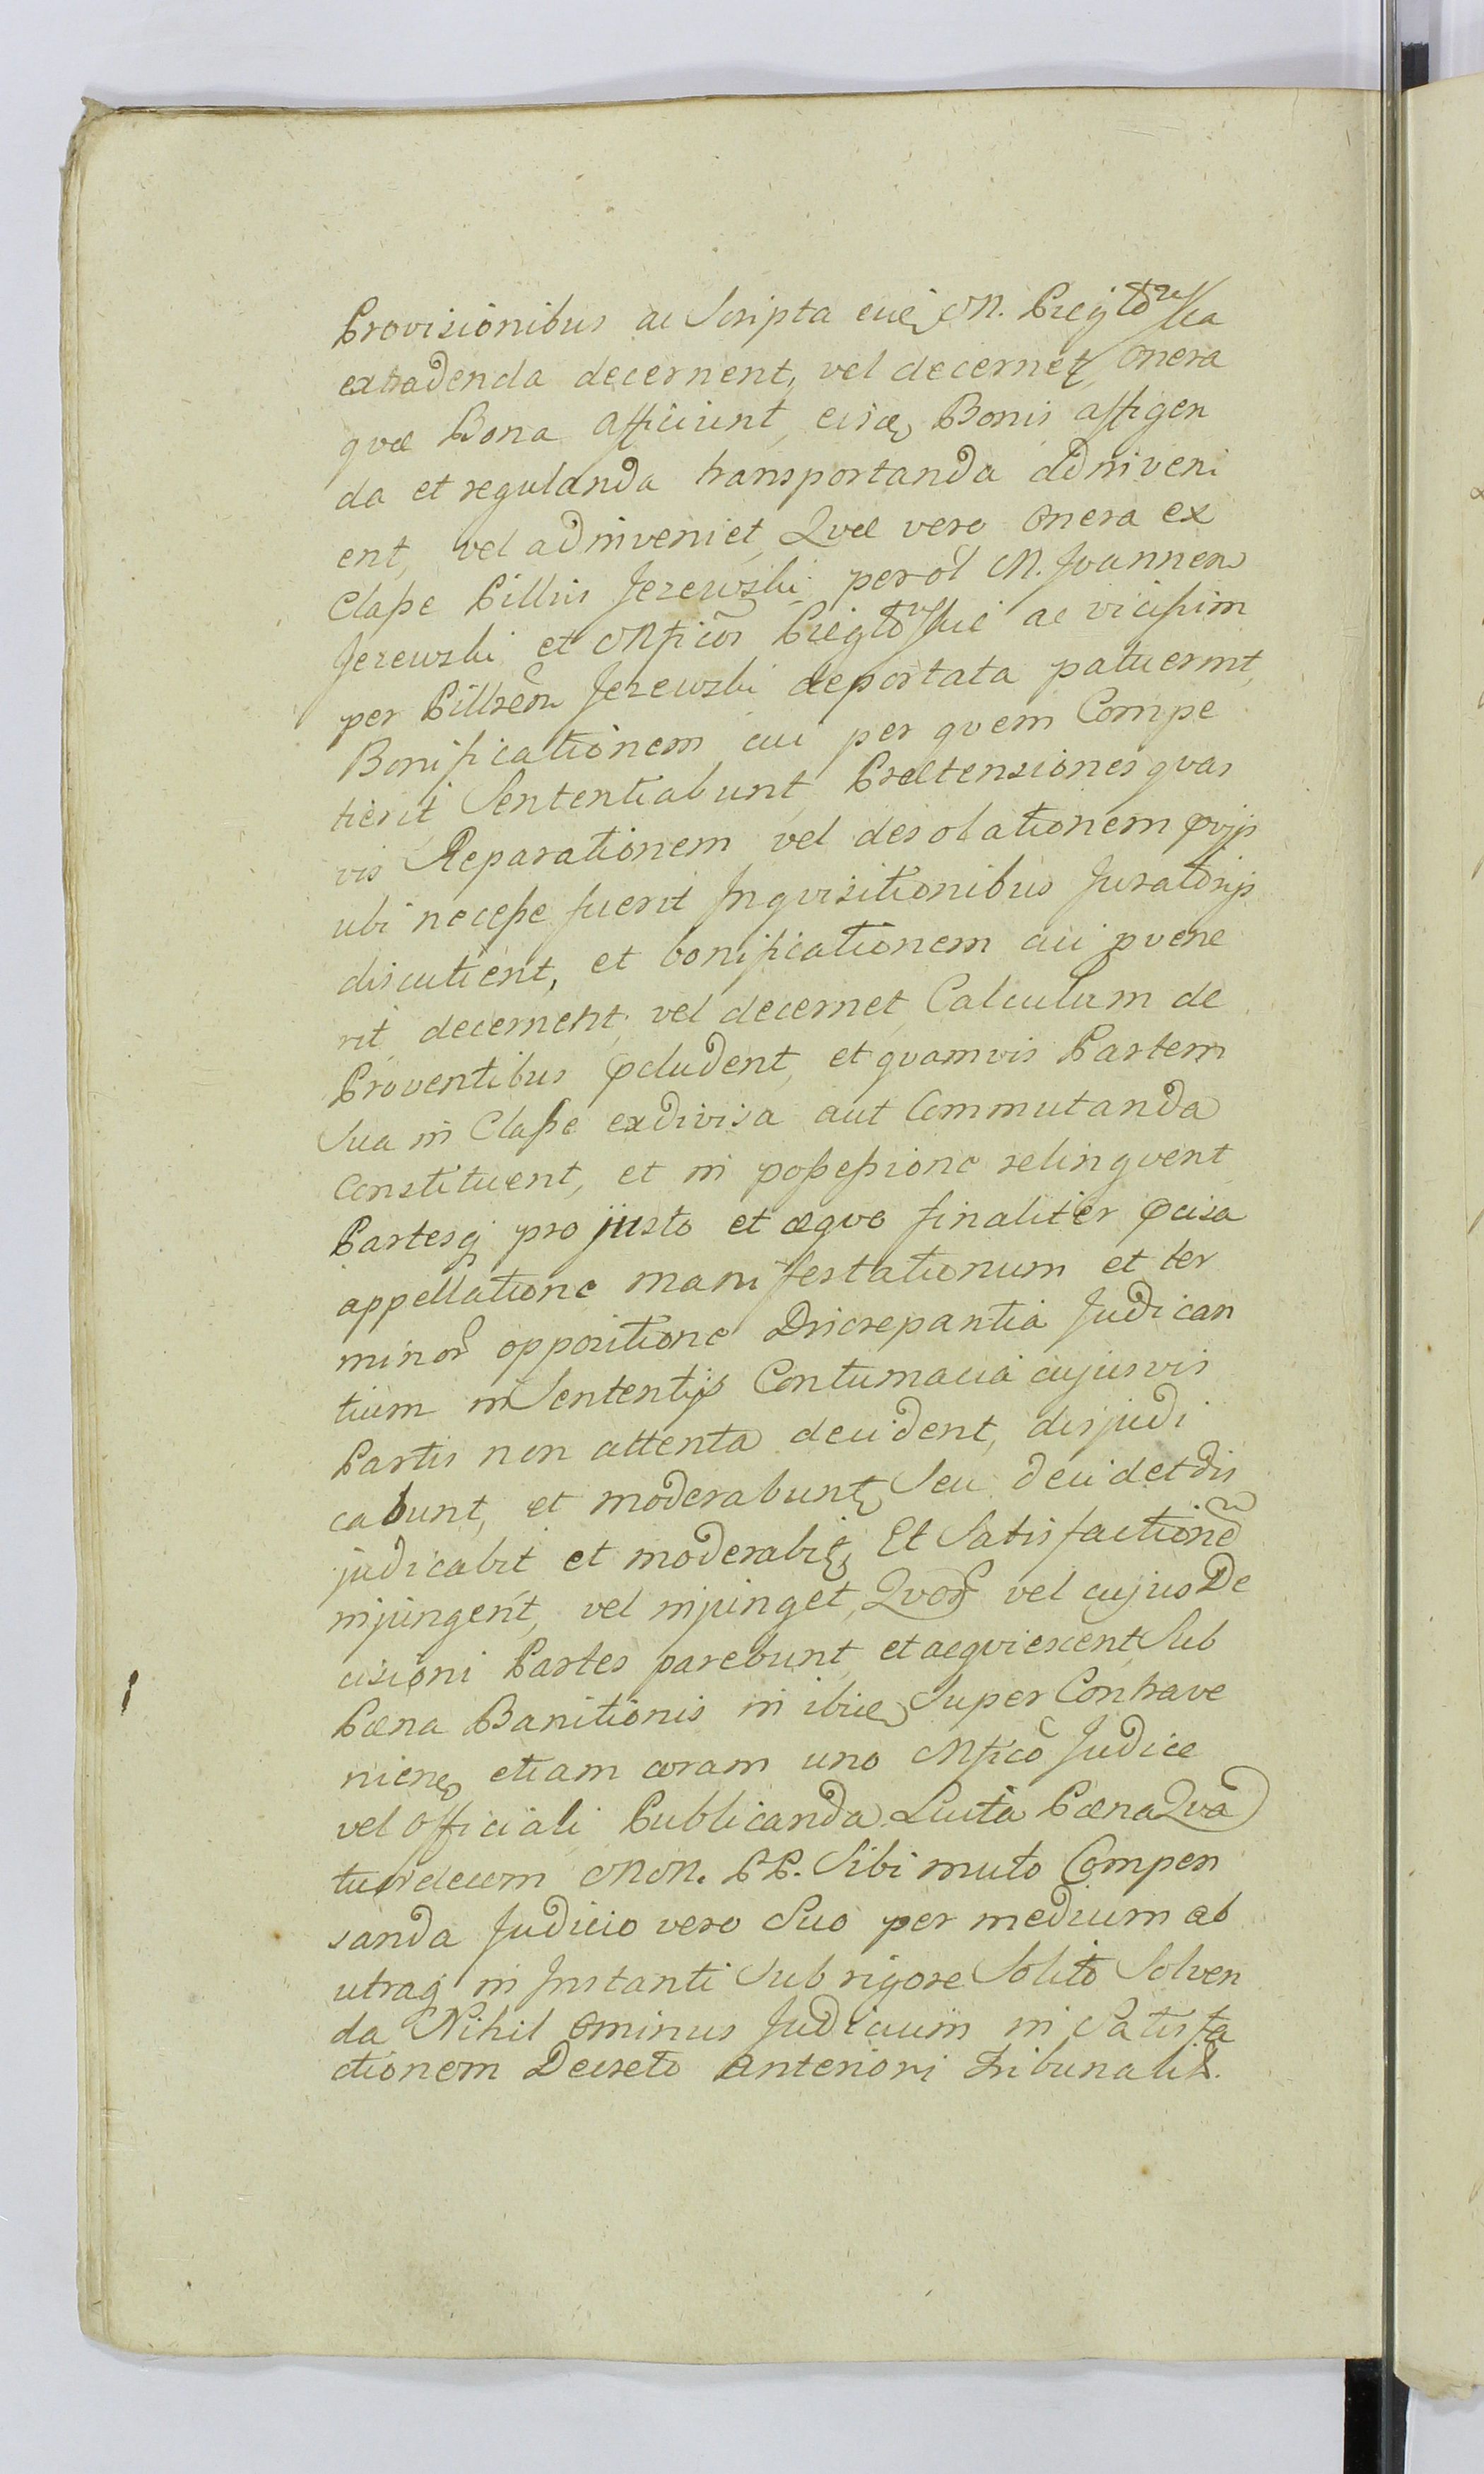 Provisionibus ac Scripta eidē M.
extradenda decernent, vel decernet, Onera
qvæ Bona afficiunt, eisdē Bonis affigen
da et regulanda transportanda adinveni
ent, vel adinveniet, Qvæ vero Onera ex
Classe Pillris Jezewski per ol M. Joannem
Jezewski et Mficos ac vicissim
per Jezewski deportata patuerint,
Bonificationem cui per qvem Compe
tierit Sententiabunt, Prætensiones qvas
vis Reparationem vel desolationem
ubi necesse fuerit Inqvisitionibus Juratorijs
discutient, et bonificationem cui pvene
rit decernent, vel decernet, Calculum de
Proventibus ꝯcludent, et qvamvis Partem
Sua in Classe exdivisa aut Commutanda
Constituent, et in possessione relinqvent
Partesq pro justo et æqvo finaliter ꝯcisa
appellatione manifestationum et ter
minor oppositione Discrepantia Judican
tium in Sententijs Contumacia cujusvis
Partis non attenta decident, disjudi
cabunt, et moderabunt, Seu decidet dis
judicabit et moderabit, Et Satisfactionē
injungent, vel injunget, Qvor vel cujus De
cisioni Partes parebunt, et acqviescent Sub
Pæna Banitionis in ibidē Super Contrave
nien etiam coram uno Mfico Judice
vel Officiali Publicanda Luita Pæna Qva
tuordecem M M. PP. Sibi muto Compen
sanda Judicio vero Suo per medium ab
utraq in Instanti Sub rigore Solito Solven
da Nihil Ominus Judicium in Satisfa
ctionem Decreto Anteriori Tribunalis.